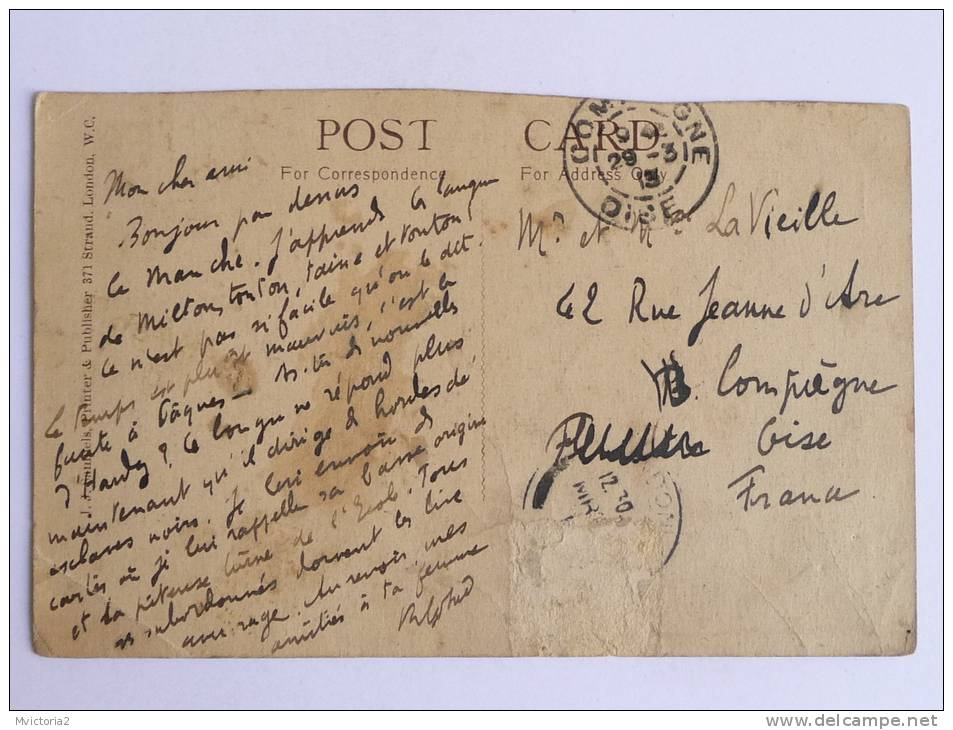 POST CARD
For Correspondence
For Address Only
J. J. Samuels, Printer & Publisher 371 Strand. London, W.C.
Mon cher ami
Bonjour par dessus
la Manche. J'apprends la langue
de Milton, tonton, taine et tonton!
Ce n'est pas si facile qu'on le dit.
Le temps est plutôt mauvais, c'est la
faute à Pâques — As-tu de nouvelles
d'Hardy? Ce ne répond plus
maintenant qu'il dirige de hordes de
esclaves noirs. Je lui envoie de
cartes où je lui rappelle sa basse origine
et sa piteuse de l'Ecole. Tous
ses subordonnés doivent les lire
avec rage. Au revoir, mes
amitiés à ta femme
M. et Me LaVieille
42 Rue Jeanne d'Arc
Compiègne
Oise
France
COMPIEGNE
OISE
29 -3
13
12.30
Mvictoria2
www.delcampe.net